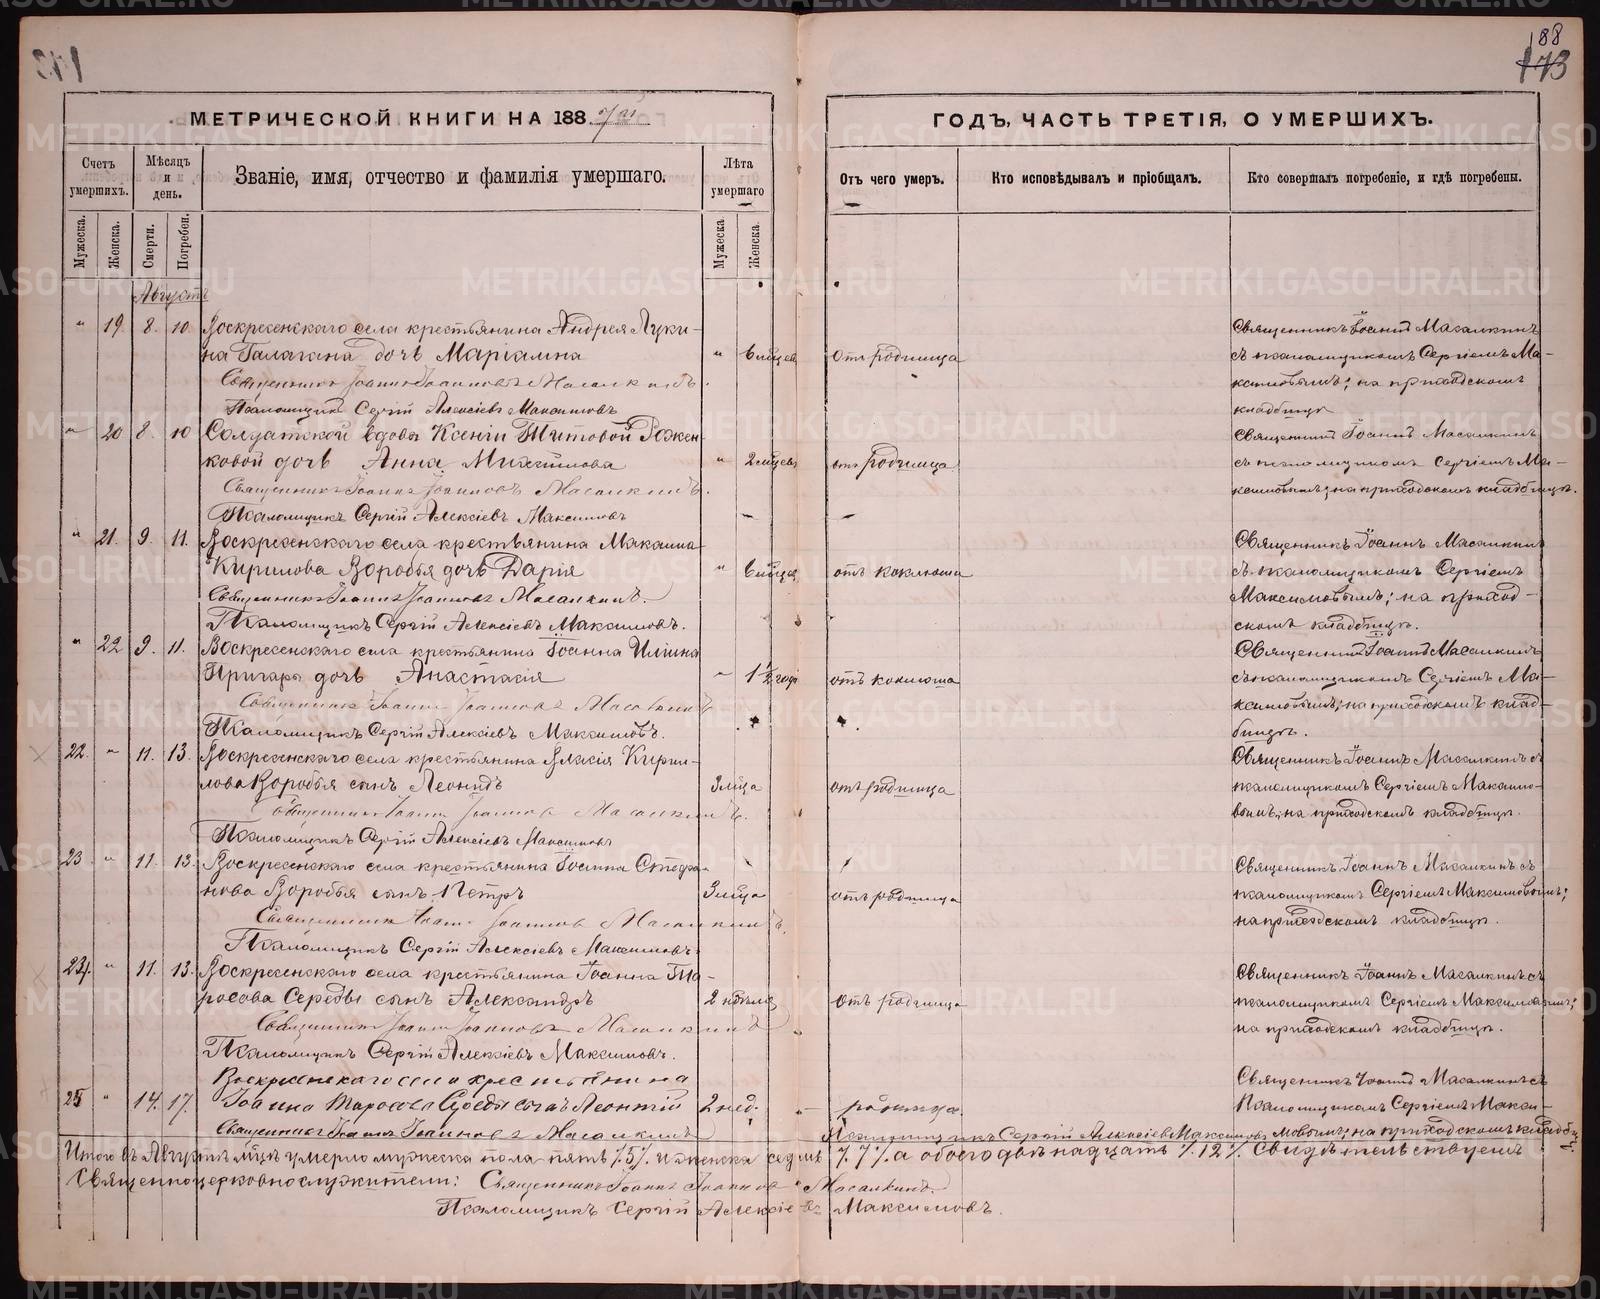 188
173
МЕТРИЧЕСКОЙ КНИГИ НА 188
ГОДЪ, ЧАСТЬ ТРЕТІЯ, О УМЕРШИХЪ.
Счетъ умершихъ.
Мѣсяцъ и день.
Званіе, имя, отчество и фамилія умершаго.
Лѣта умершаго
Отъ чего умеръ.
Кто исповѣдывалъ и пріобщалъ.
Кто совершалъ погребеніе, и гдѣ погребены.
Мужеска. Женска. Смерти. Погребен. Мужеска Женска.
Августъ
" 19 8. 10 Воскресенскаго села крестьянина Андрея Луки- Священникъ Іоаннъ Масалкинъ
на Галагана дочь Маріамна " 6 мѣсцев отъ родимца съ псаломщикомъ Сергіемъ Ма-
Священникъ Іоаннъ Іоанновъ Масалкинъ. ксимовымъ; на приходскомъ
Псаломщикъ Сергій Алексіевъ Максимовъ кладбищѣ
" 20 8. 10 Солдатской вдовы Ксеніи Титовой Священникъ Іоаннъ Масалкинъ
ковой дочь Анна Михайлова " 2 мѣсцев отъ родимца съ псаломщикомъ Сергіемъ Ма-
Священникъ Іоаннъ Іоанновъ Масалкинъ. ксимовымъ; на приходскомъ кладбищѣ.
Псаломщикъ Сергій Алексіевъ Максимовъ
" 21. 9. 11. Воскресенскаго села крестьянина Максима Священникъ Іоаннъ Масалкинъ
Кирилова Воробья дочь Дарія " 6 мѣсцев отъ коклюша съ псаломщикомъ Сергіемъ
Священникъ Іоаннъ Іоанновъ Масалкинъ. Максимовымъ; на приход-
Псаломщикъ Сергій Алексіевъ Максимовъ. скомъ кладбищѣ.
" 22 9. 11. Воскресенскаго села крестьянина Іоанна Ильина Священникъ Іоаннъ Масалкинъ
дочь Анастасія " 1 1/2 года отъ коклюша съ псаломщикомъ Сергіемъ Ма-
Священникъ Іоаннъ Іоанновъ Масалкинъ ксимовымъ; на приходскомъ клад-
Псаломщикъ Сергій Алексіевъ Максимовъ. бищѣ.
22. " 11. 13. Воскресенскаго села крестьянина Власія Кирил- Священникъ Іоаннъ Масалкинъ съ
лова Воробья сынъ Леонидъ 3 мѣца отъ родимца псаломщикомъ Сергіемъ Максимо-
Священникъ Іоаннъ Іоанновъ Масалкинъ. вымъ; на приходскомъ кладбищѣ.
Псаломщикъ Сергій Алексіевъ Максимовъ
23 " 11. 13. Воскресенскаго села крестьянина Іоанна Стефа- Священникъ Іоаннъ Масалкинъ съ
нова Воробья сынъ Петръ 3 мѣца отъ родимца псаломщикомъ Сергіемъ Максимовымъ;
Священникъ Іоаннъ Іоанновъ Масалкинъ. на приходскомъ кладбищѣ.
Псаломщикъ Сергій Алексіевъ Максимовъ.
24. " 11. 13. Воскресенскаго села крестьянина Іоанна Та- Священникъ Іоаннъ Масалкинъ съ
расова Середы сынъ Александръ 2 недѣли отъ родимца псаломщикомъ Сергіемъ Максимовымъ;
Священникъ Іоаннъ Іоанновъ Масалкинъ на приходскомъ кладбищѣ.
Псаломщикъ Сергій Алексіевъ Максимовъ.
Воскресенскаго села крестьянина Священникъ Іоаннъ Масалкинъ съ
25 " 14. 17. Іоанна Тарасова Середы сынъ Леонтій 2 нед. родимца. Псаломщикомъ Сергіемъ Макси-
Священникъ Іоаннъ Іоанновъ Масалкинъ Псаломщикъ Сергій Алексіевъ Максимовъ мовымъ; на приходскомъ кладбищѣ.
Итого въ Августѣ мѣсцѣ умерло мужеска пола пять /.5/. и женска седмь /.7/. а обоего двѣнадцать /.12/. Свидѣтельствуемъ
Священноцерковнослужители: Священникъ Іоаннъ Іоанновъ Масалкинъ.
Псаломщикъ Сергій Алексіевъ Максимовъ.
METRIKI.GASO-URAL.RU